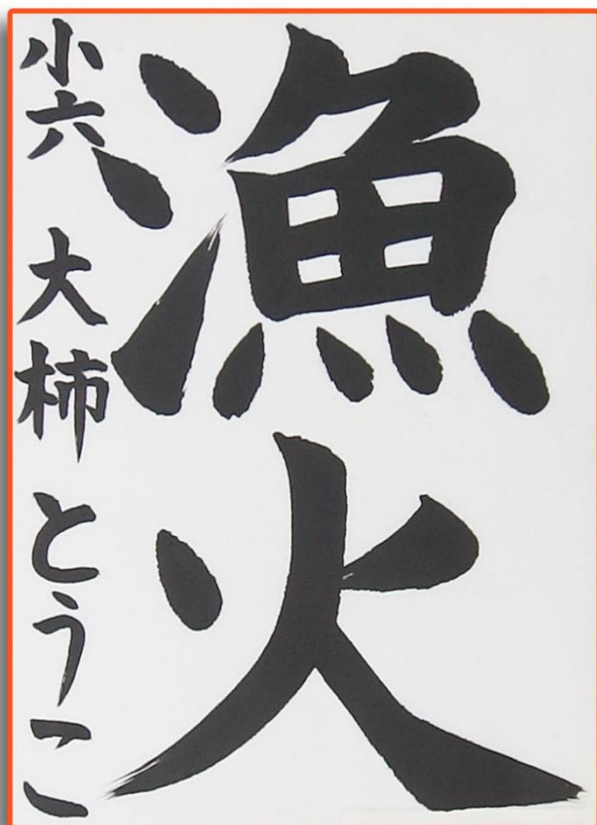 漁火
小六 大柿とうこ